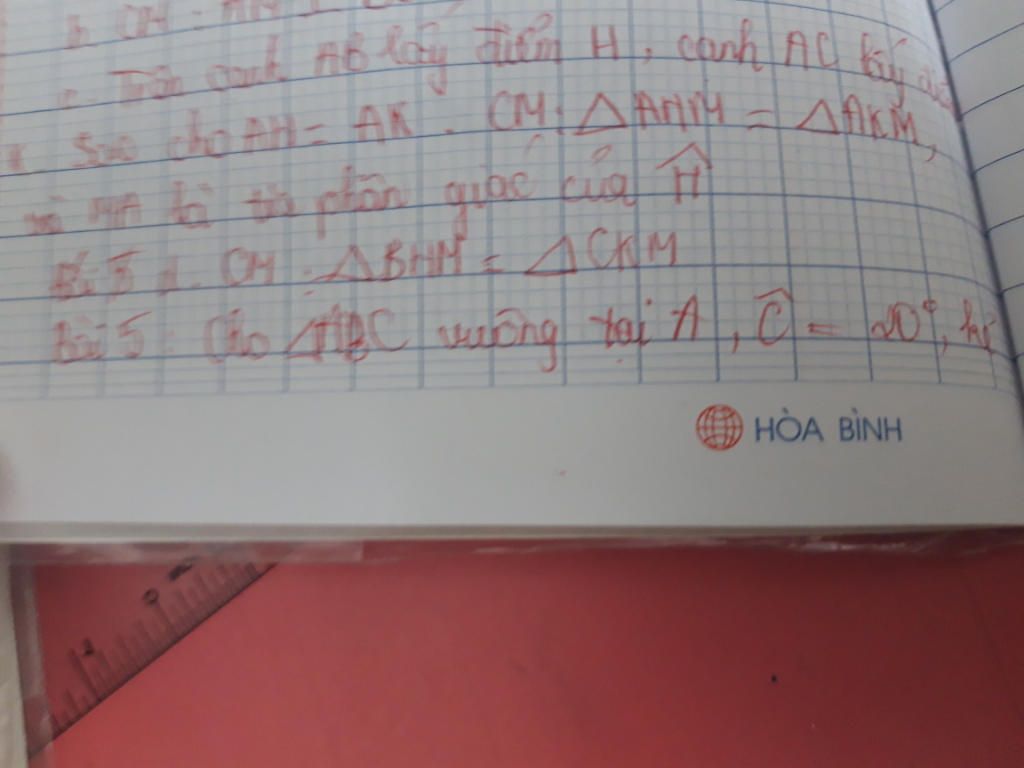 b. CM: AM
c. Trên cạnh AB lấy điểm H, cạnh AC lấy
K sao cho AH = AK. CM: △AHM = △AKM,
MA là tia phân giác của Ĥ
d. CM: △BHM = △CKM
Bài 5: Cho △ABC vuông tại A, Ĉ = 20°, kẻ
HÒA BÌNH